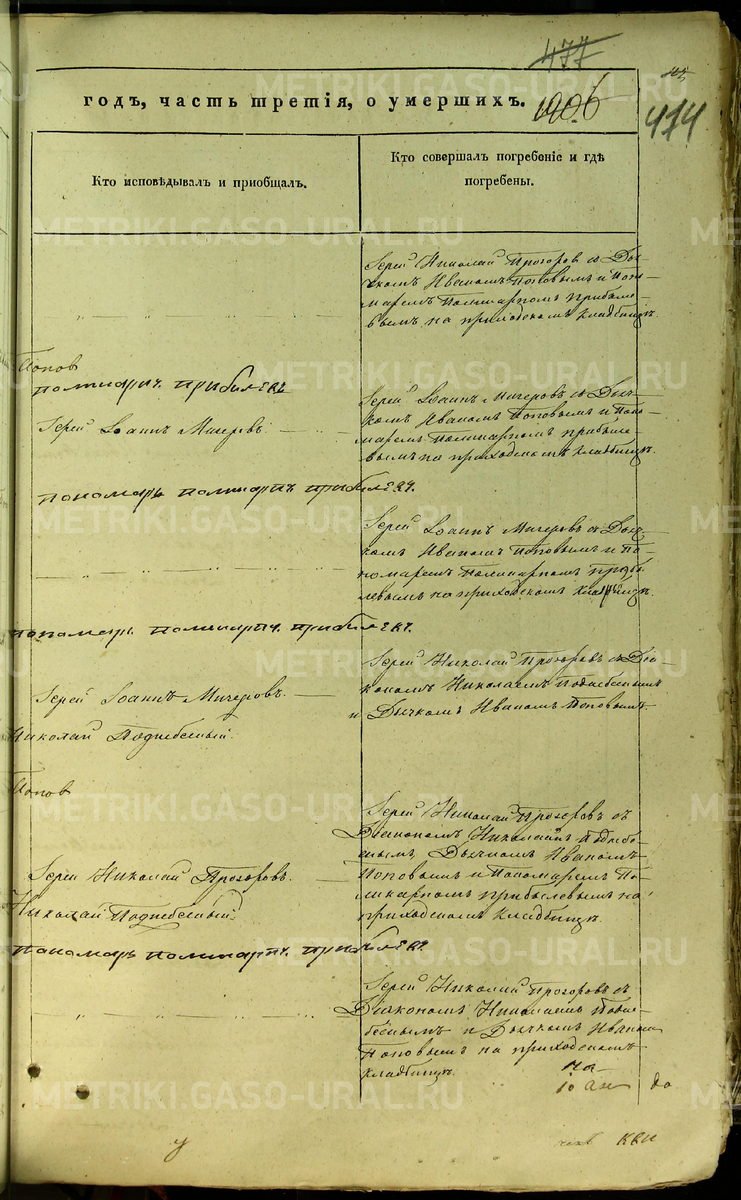 477
годъ, часть третія, о умершихъ.
1906
474
Кто исповѣдывалъ и приобщалъ.
Кто совершалъ погребеніе и гдѣ
погребены.
Іерей Николай Прозоров съ Дья-
чкомъ Иваномъ Поповымъ и Поно-
марем Поликарпом Прибыле-
вымъ на приходскомъ кладбищѣ.
Попов
Поликарпъ Прибылевъ
Іерей Іоаннъ Мичеровъ
Іерей Іоаннъ Мичеровъ съ Дьяч-
комъ Иваномъ Поповымъ и Поно-
маремъ Поликарпомъ Прибыле-
вымъ на приходскомъ кладбищѣ.
Пономарь Поликарпъ Прибылевъ.
Іерей Іоаннъ Мичеровъ съ Дьяч-
комъ Иваномъ Поповымъ и По-
номаремъ Поликарпомъ Прибы-
левымъ на приходскомъ кладбищѣ.
Пономарь Поликарпъ Прибылевъ.
Іерей Николай Прозоровъ съ Діа-
кономъ Николаемъ Поднебеснымъ
и Дьячкомъ Иваномъ Поповымъ.
Іерей Іоаннъ Мичеровъ.
Николай Поднебесный.
Попов
Іерей Николай Прозоровъ съ
Діакономъ Николаемъ Поднебе-
снымъ, Дьячкомъ Иваномъ
Поповымъ и Пономаремъ По-
ликарпомъ Прибылевымъ на
приходскомъ кладбищѣ.
Іерей Николай Прозоровъ.
Николай Поднебесный
Пономарь Поликарпъ Прибылевъ.
Іерей Николай Прозоровъ съ
Діакономъ Николаемъ Подне-
беснымъ и Дьячкомъ Иваном
Поповымъ на приходскомъ
кладбищѣ.
на
10
до
METRIKI.GASO-URAL.RU